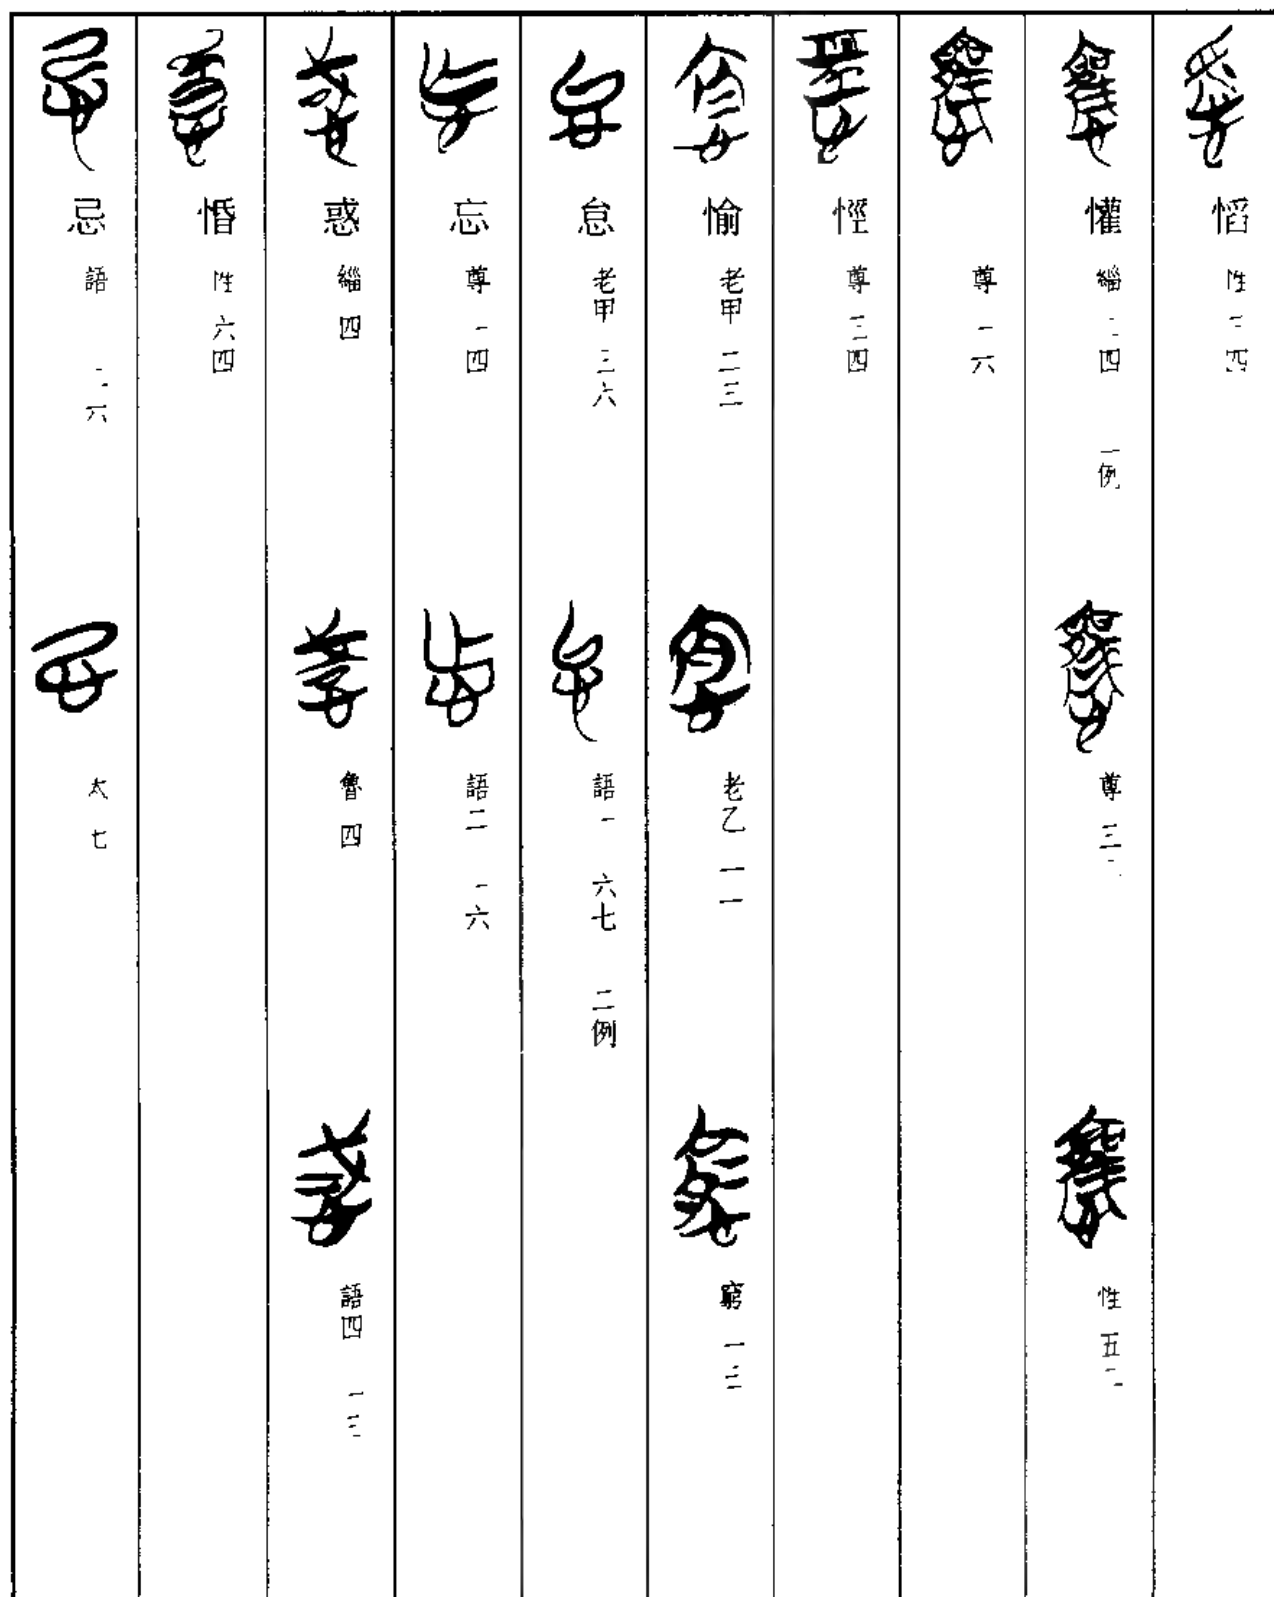 慆
性 三四
懽
緇 二四 一例
尊 三一
性 五二
尊 一六
悭
尊 三四
愉
老甲 二三
老乙 一一
窮 一三
怠
老甲 三六
語一 六七 二例
忘
尊 一四
語二 一六
惑
緇 四
魯 四
語四 一三
惛
性 六四
忌
語 六
太 七